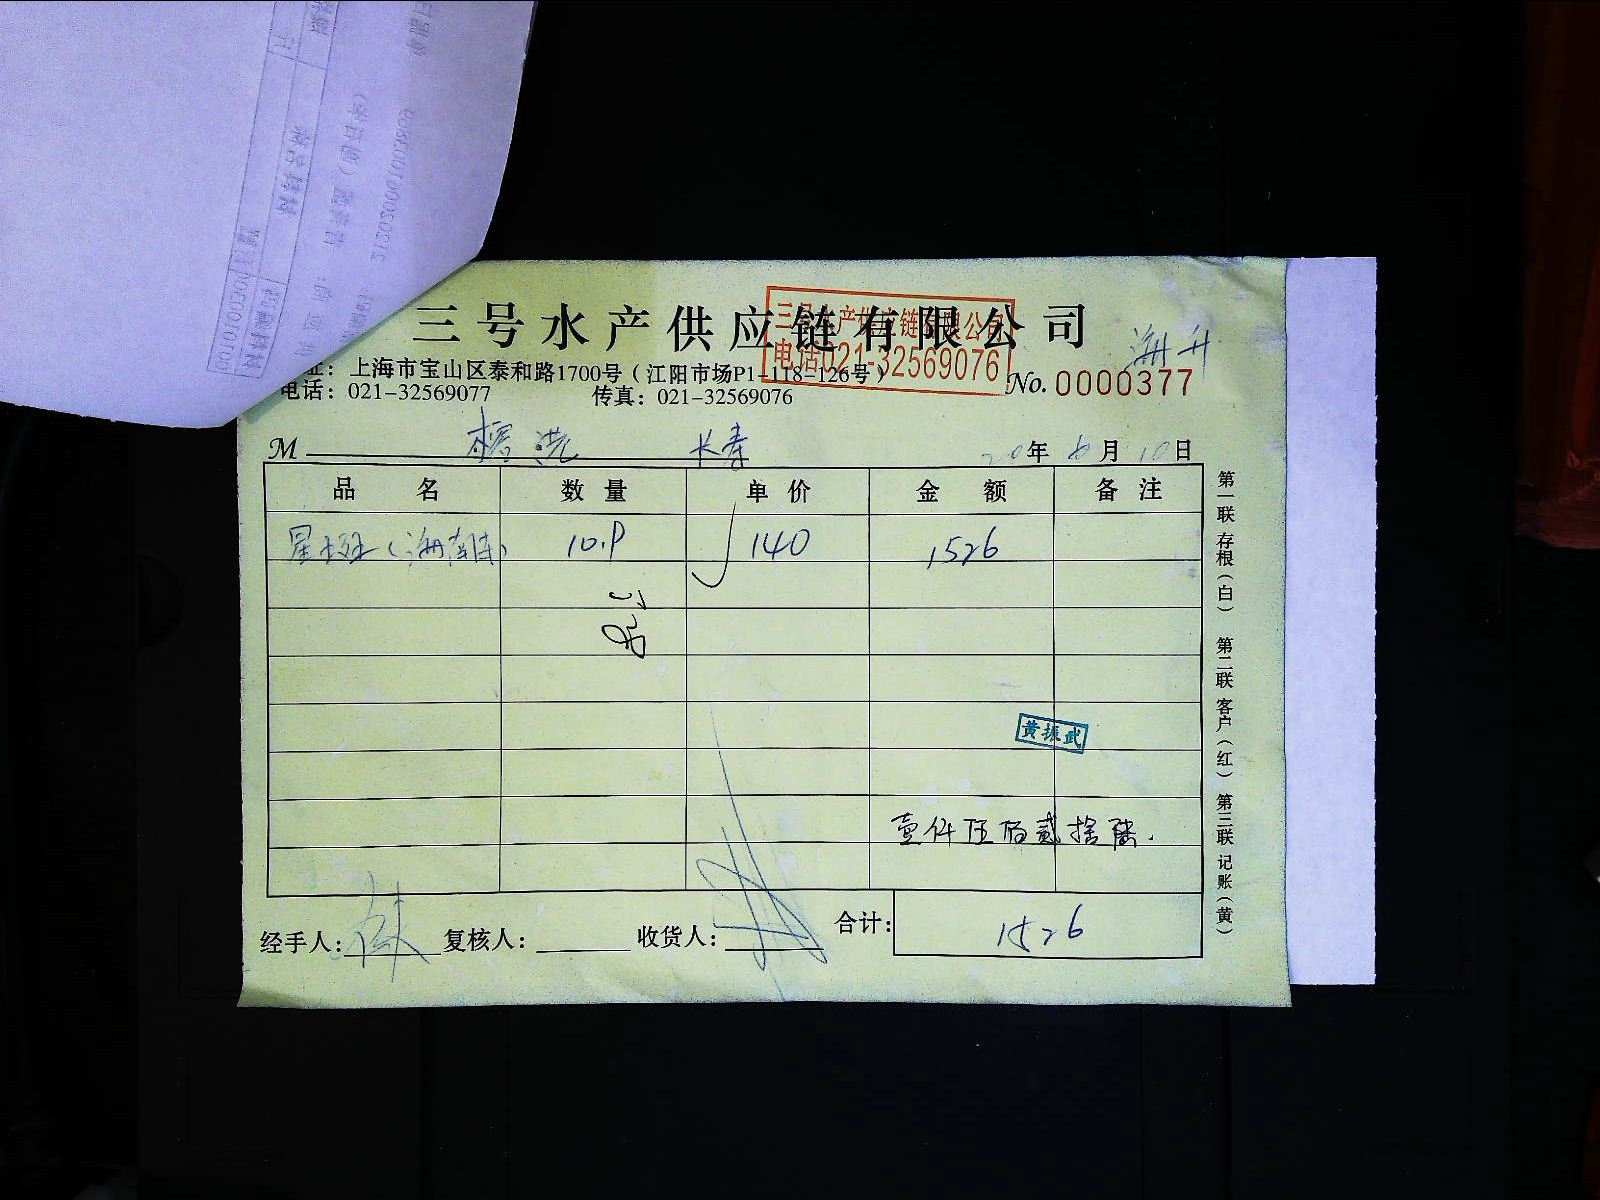 三号水产供应链有限公司
三号水产供应链有限公司
电话021-32569076
海升
址：上海市宝山区泰和路1700号（江阳市场P1-118-126号）
No. 0000377
电话：021-32569077 传真：021-32569076
M 长寿 20年6月10日
品名 数量 单价 金额 备注
星斑（海南） 10.9 140 1526
黄振武
壹仟伍佰贰拾陆.
经手人： 复核人： 收货人： 合计： 1526
第一联 存根（白） 第二联 客户（红） 第三联 记账（黄）